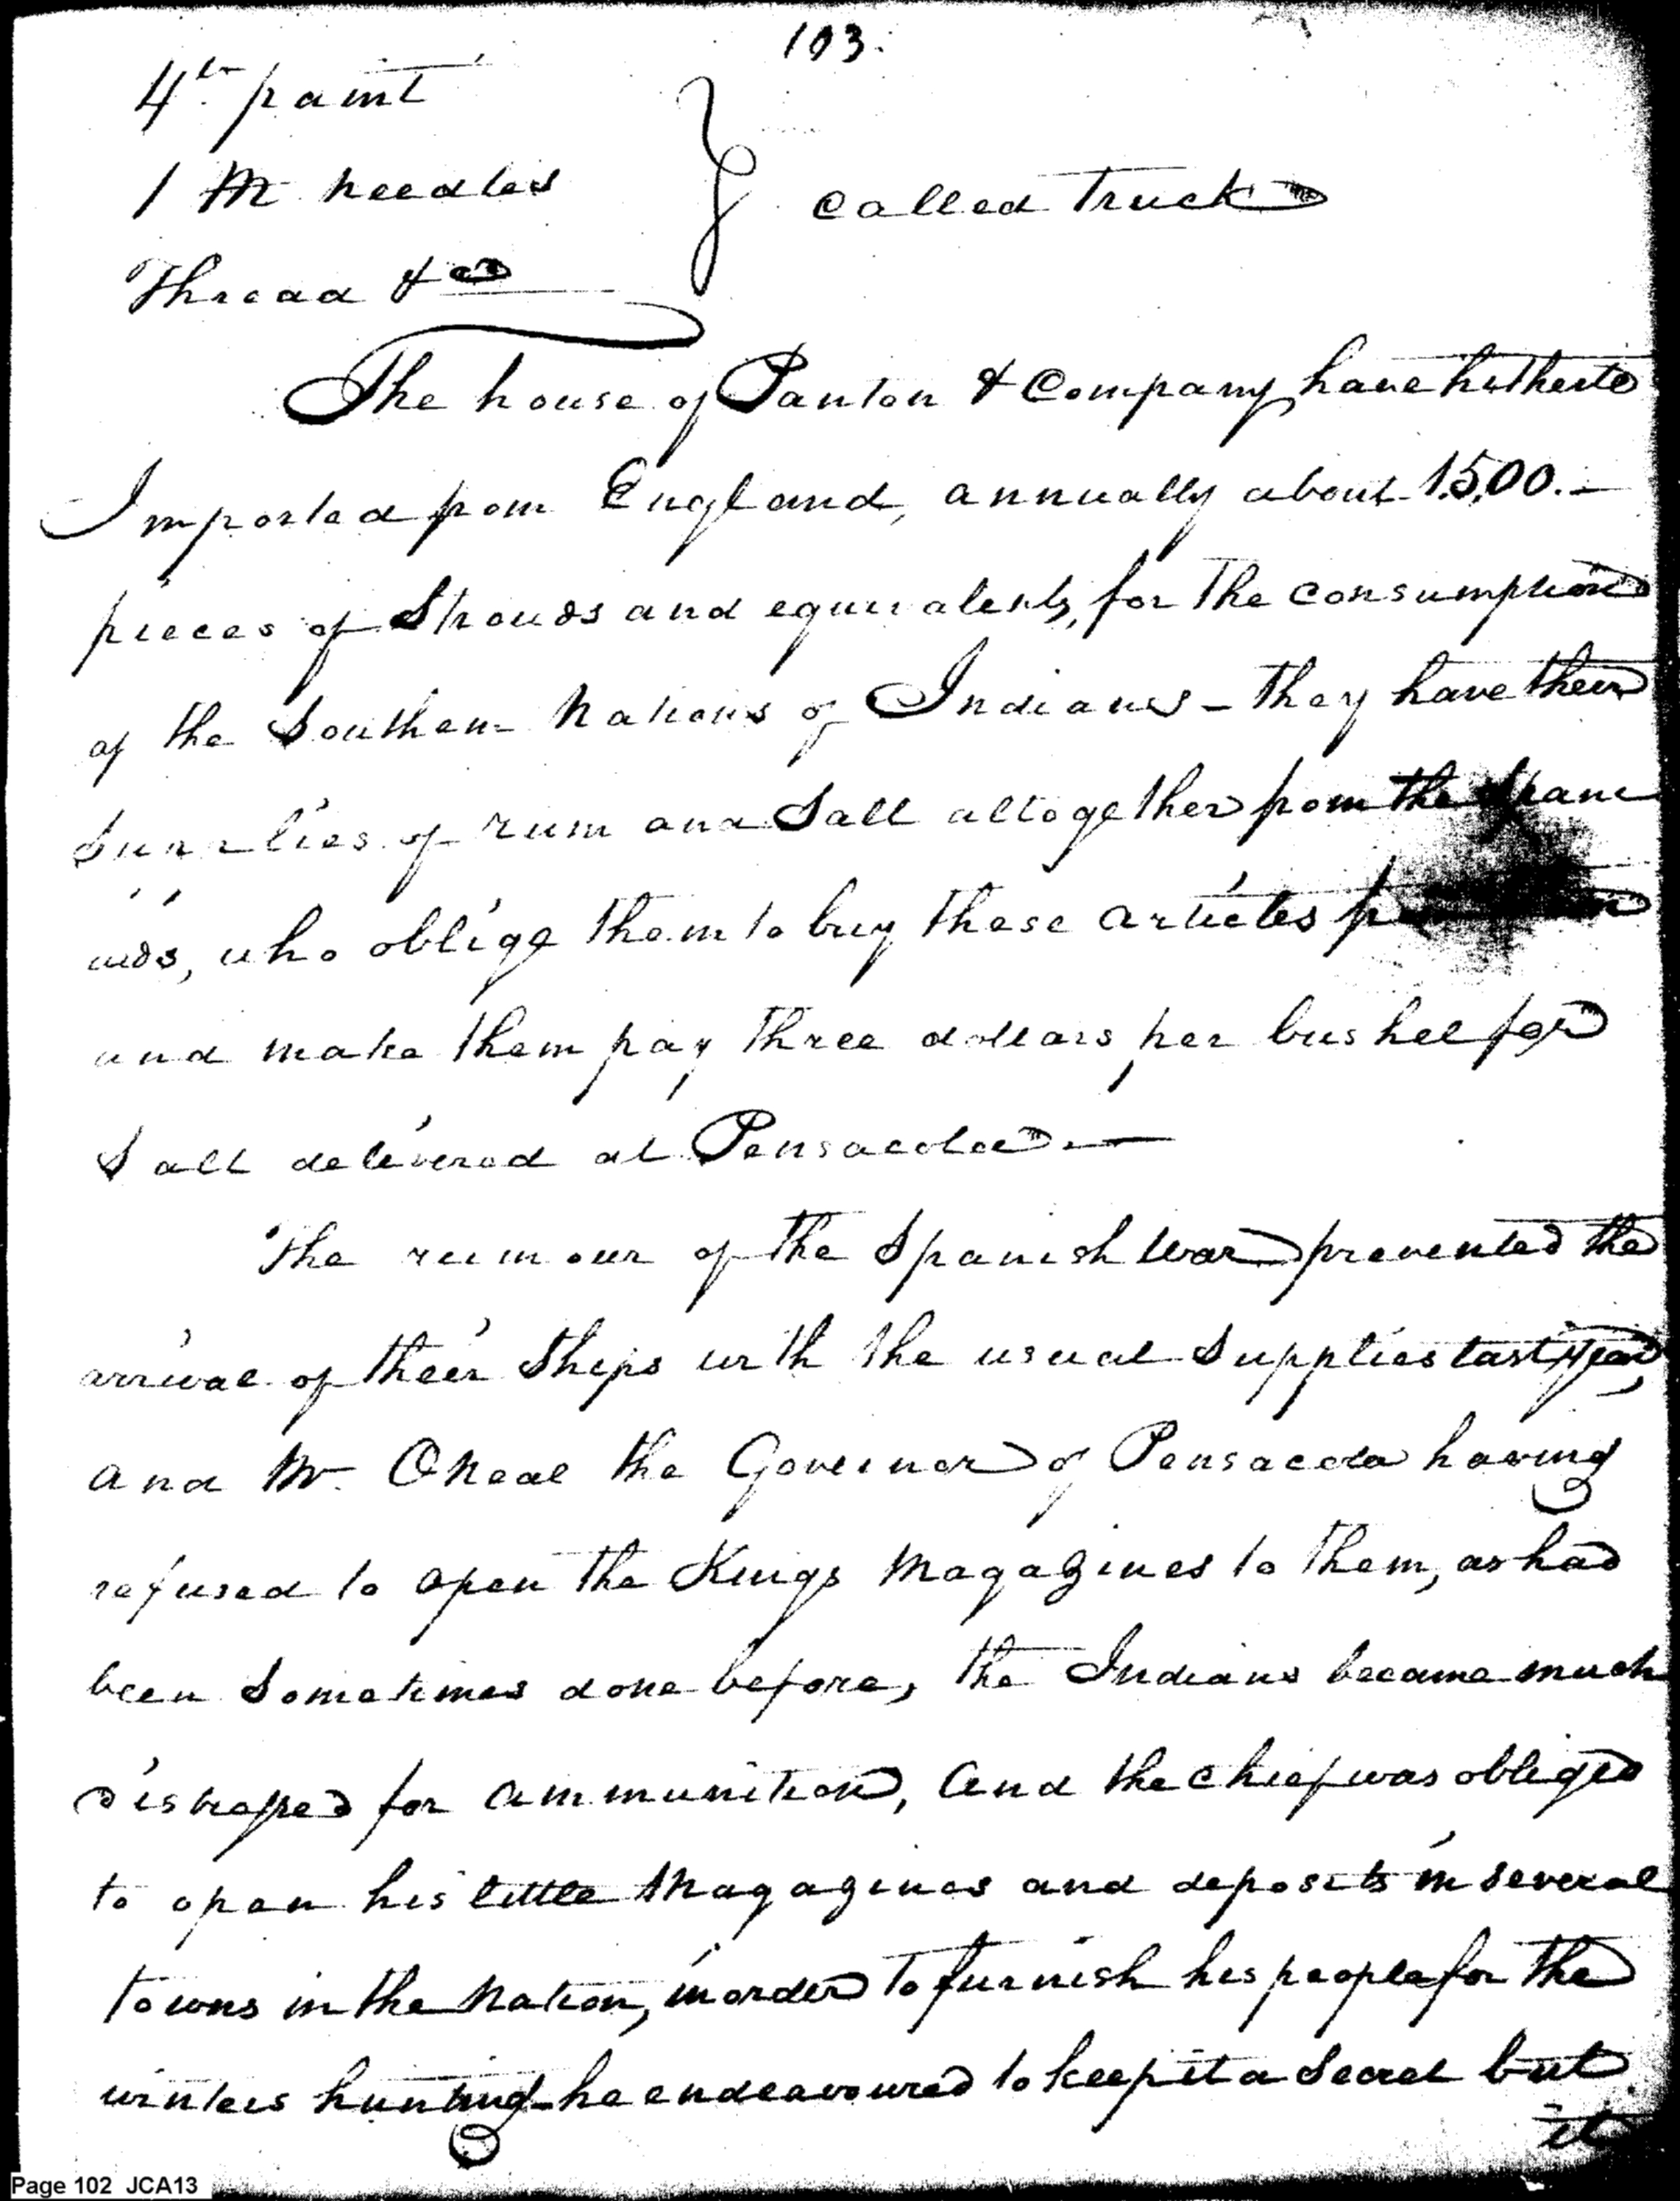 103.
4 lb paint
1 M needles
called Truck
Thread & ca
The house of Panton & Company have hitherto
Imported from England, annually about 1.500. —
pieces of Strouds and equivalents, for the consumption
of the Southern Nations of Indians - they have their
Supplies of rum and Salt altogether from the Spani
ards, who oblige them to buy these articles
and make them pay three dollars per bushel for
Salt delivered at Pensacola. —
The rumour of the Spanish War prevented the
arrival of their Ships with the usual Supplies last year,
and Mr. ONeal the Governor of Pensacola having
refused to open the Kings Magazines to them, as had
been Sometimes done before, the Indians became much
distressed for ammunition, and the chief was obliged
to open his little Magazines and deposits in several
towns in the Nation, in order to furnish his people for the
winters hunting - he endeavoured to keep it a Secret but
it
Page 102 JCA13